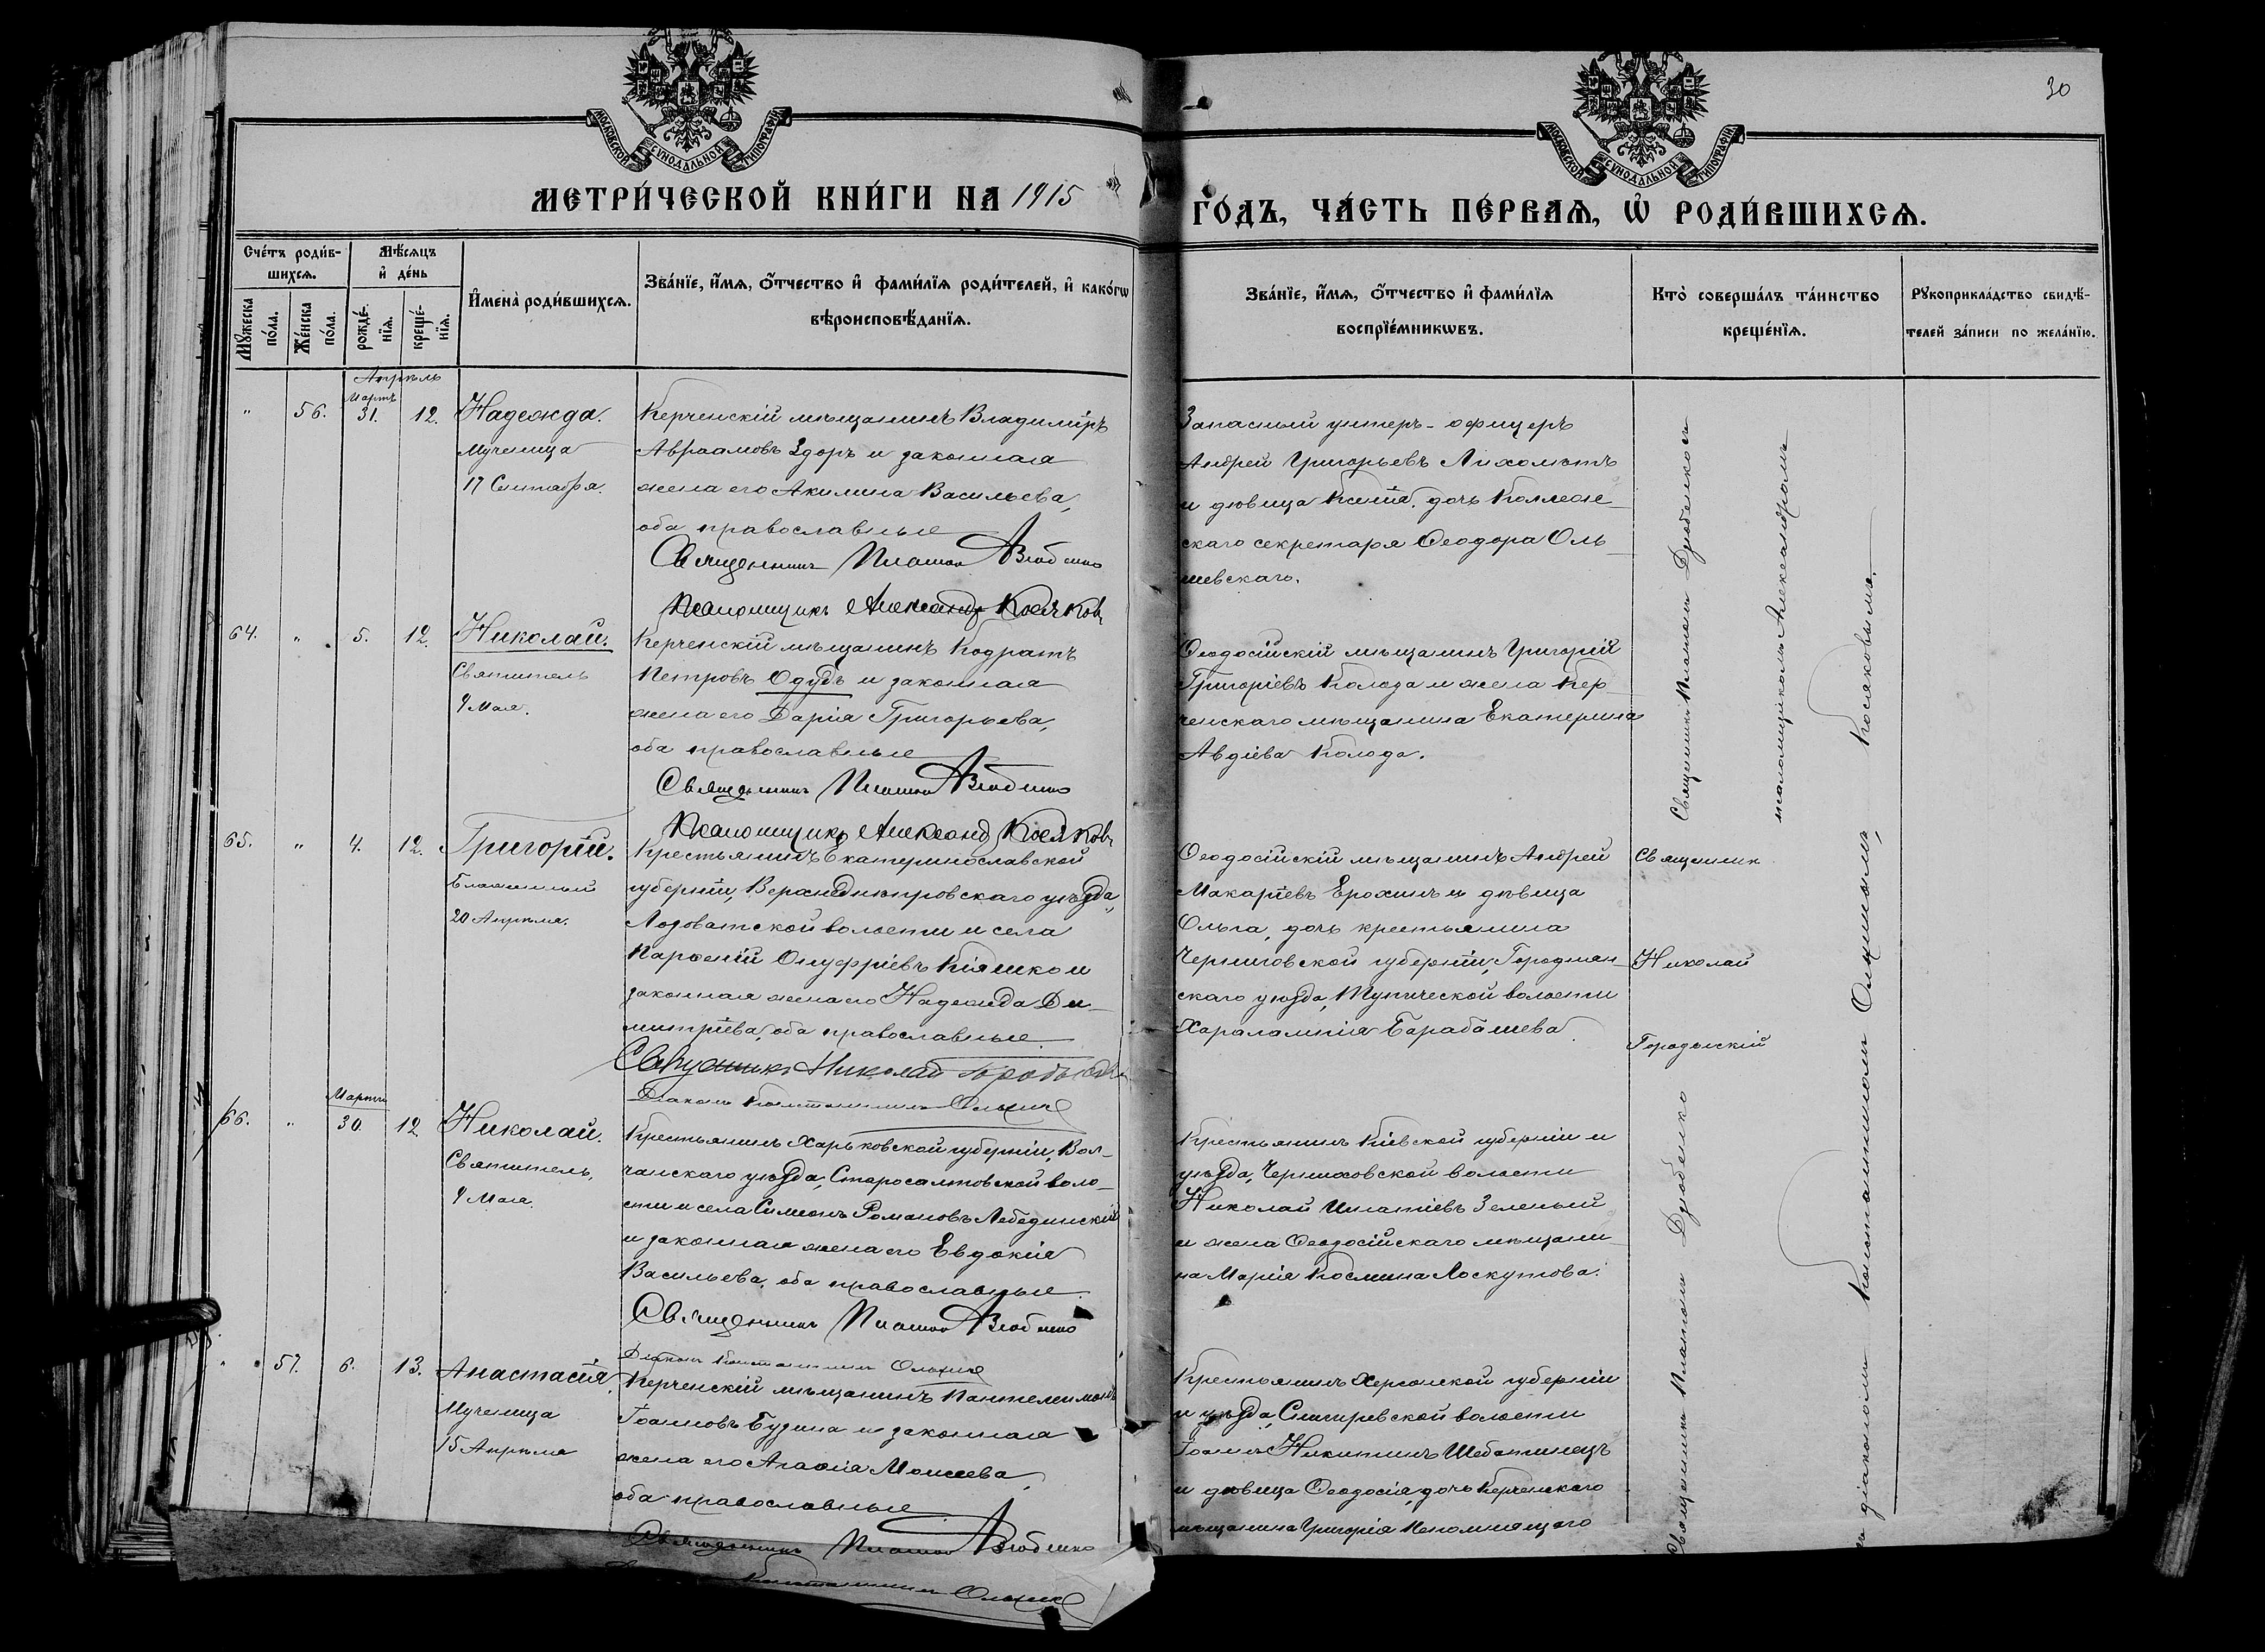 30
МОСКОВСКОЙ СУНОДАЛЬНОЙ ТИПОГРАФІИ
МОСКОВСКОЙ СУНОДАЛЬНОЙ ТИПОГРАФІИ
МЕТРИ́ЧЕСКОЙ КНИ́ГИ НА 1915
ГО́ДЪ, ЧА́СТЬ ПЕ́РВАѦ, Ѡ҆ РОДИ́ВШИХСѦ.
Сче́тъ роди́в-
шихсѧ.
Мꙋ́жеска
по́ла.
Же́нска
по́ла.
Мѣ́сѧцъ
и҆ де́нь
рожде́-
нїѧ.
креще́-
нїѧ.
И҆мена̀ роди́вшихсѧ.
Зва́нїе, и҆́мѧ, ѻ҆́тчество и҆ фами́лїѧ роди́телей, и҆ како́гѡ
вѣроисповѣ́данїѧ.
Зва́нїе, и҆́мѧ, ѻ҆́тчество и҆ фами́лїѧ
воспрїе́мникѡвъ.
Кто̀ соверша́лъ та́инство
креще́нїѧ.
Рꙋкоприкла́дство свидѣ́-
телей за́писи по жела́нїю.
Апрѣль
Мартъ
" 56. 31. 12. Надежда.
Мученица
17 Сентября.
Керченскій мѣщанинъ Владиміръ
Авраамовъ Здоръ и законная
жена его Акилина Васильева,
оба православные
Священникъ Платон Дзюбенко
Псаломщикъ Александр Косяков
Запасный унтеръ-офицеръ
Андрей Григорьевъ Лихомотъ
и дѣвица Ксенія, дочь Коллеж-
скаго секретаря Ѳеодора Оль-
шевскаго.
Священник Платон Дзюбенко и
псаломщикомъ Александромъ
Косяковымъ.
64. " 5. 12. Николай.
Святитель
9 Мая.
Керченскій мѣщанинъ Кодратъ
Петровъ Одудъ и законная
жена его Дарія Григорьева,
оба православные
Священникъ Платон Дзюбенко
Псаломщикъ Александр Косяков
Ѳеодосійскій мѣщанинъ Григорій
Григоріевъ Колода и жена Кер-
ченскаго мѣщанина Екатерина
Авдіева Колода.
65. " 4. 12. Григорій.
Блаженный
20 Апрѣля.
Крестьянинъ Екатеринославской
губерніи, Верхнеднѣпровскаго уѣзда,
Лозоватской волости и села
Парѳеній Онуфріевъ Кіяшко и
законная жена его Надежда Ди-
митріева, оба православные.
Священникъ Николай Городынскій
Діаконъ Константинъ
Ѳеодосійскій мѣщанинъ Андрей
Макаріевъ Ерохинъ и дѣвица
Ольга, дочь крестьянина
Черниговской губерніи, Городнян-
скаго уѣзда, Тупической волости
Харалампія Барабашева.
Священник
Николай
Городынскій
Мартъ
66. " 30. 12 Николай.
Святитель,
9 Мая.
Крестьянинъ Харьковской губерніи, Вол-
чанскаго уѣзда, Старосалтовской воло-
сти и села Симеонъ Романовъ Лебединскій
и законная жена его Евдокія
Васильева, оба православные.
Священникъ Платон Дзюбенко
Діаконъ Константинъ
Крестьянинъ Кіевской губерніи и
уѣзда, Черняховской волости
Николай Игнатіевъ Зеленый
и жена Ѳеодосійскаго мѣщани-
на Марія Космина Лоскутова.
Священник Платон Дзюбенко
діакономъ Константином
" 57. 6. 13. Анастасія.
Мученица
15 Апрѣля
Керченскій мѣщанинъ Пантелеимонъ
Іоанновъ Будина и законная
жена его Агаѳія Моисеева,
оба православные
Священникъ Платон Дзюбенко
Константинъ
Крестьянинъ Херсонской губерніи
и уѣзда, Снигиревской волости
Іоаннъ Никитинъ
и дѣвица Ѳеодосія, дочь Керченскаго
мѣщанина Григорія Непомнящаго